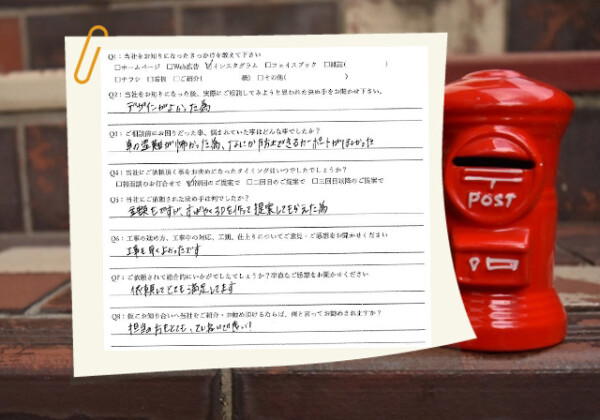 Q1：当社をお知りになったきっかけを教えて下さい
□ホームページ □Web広告 ☑インスタグラム □フェイスブック □雑誌( )
□チラシ □看板 □ご紹介( 様) □その他( )
Q2：当社をお知りになった後、実際にご相談してみようと思われた決め手をお聞かせ下さい。
デザインがよかった為
Q3：ご相談前にお困りだった事、悩まれていた事はどんな事でしたか？
車の盗難が怖かった為、なにか防止できるカーポートがほしかった
Q4：当社にご依頼頂く事をお決めになったタイミングはいつでしたでしょうか？
□初面談のお打合せで ☑初回のご提案で □二回目のご提案で □三回目以降のご提案で
Q5：当社にご依頼された決め手は何でしたか？
すばやく3Dを作って提案してもらえた為
Q6：工事の進め方、工事中の対応、工期、仕上りについてご意見・ご感想をお聞かせください
工事も早くよかったです
Q7：ご依頼されて総合的にいかがでしたでしょうか？率直なご感想をお聞かせください
依頼してとても満足してます
Q8：仮にお知り合いへ当社をご紹介・お勧め頂けるならば、何と言ってお勧めされますか？
担当の方もとても
POST